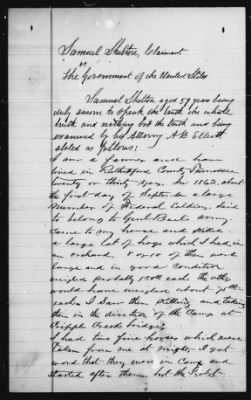 Samuel Shelton, Claimant
vs
The Government of the United States
Samuel Shelton aged 57 years being
duly sworn to speak the truth the whole
truth and nothing but the truth and being
examined by his Attorney A B Elliott
stated as follows:
I am a farmer and have
lived in Rutherford County Tennessee
twenty or thirty years. In 1862 about
the first day of Septem a large
number of Federal Soldiers, said
to belong to Genl Buels army
came to my house and killed
a large lot of hogs which I had in
an orchard, 8 or 10 of them were
large and in good condition
weigh probably 150# each the other
would have weighed about
each. I saw them killing and taking
them in the direction of the Camp at
Cripple Creek bridge.
I had two fine horses which were
taken from me at night, I got
word that they were in Camp and
started after them but the Picket